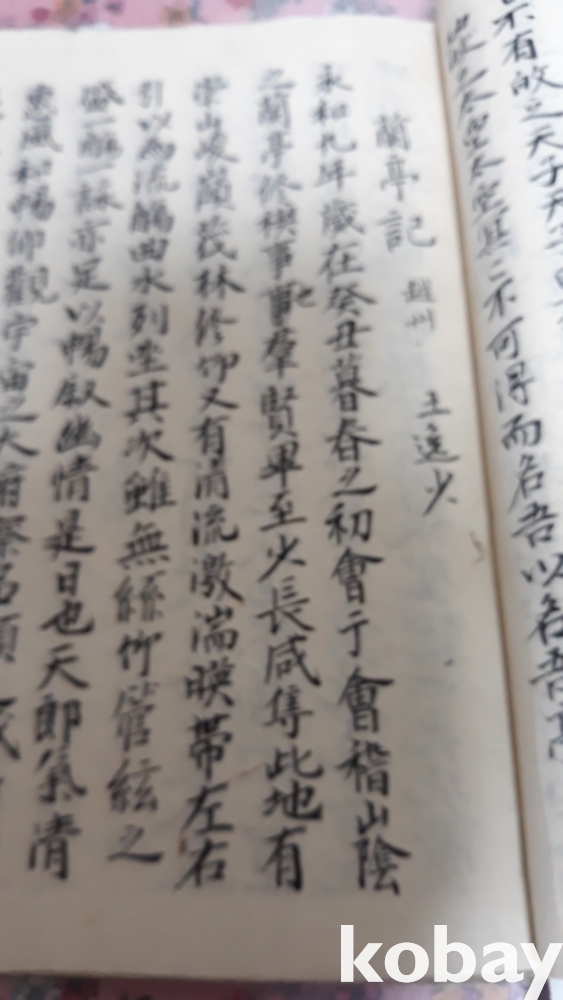 不有歸之天子天子
之太空太空冥〻不可得而名吾以名吾亭
蘭亭記 越州 王逸少
永和九年歲在癸丑暮春之初會于會稽山陰
之蘭亭修禊事事也羣賢畢至少長咸集此地有
崇山峻嶺茂林修竹又有清流激湍暎帶左右
引以為流觴曲水列坐其次雖無絲竹管絃之
盛一觴一詠亦足以暢叙幽情是日也天郎氣清
惠風和暢仰觀宇宙之大俯察品類
kobay